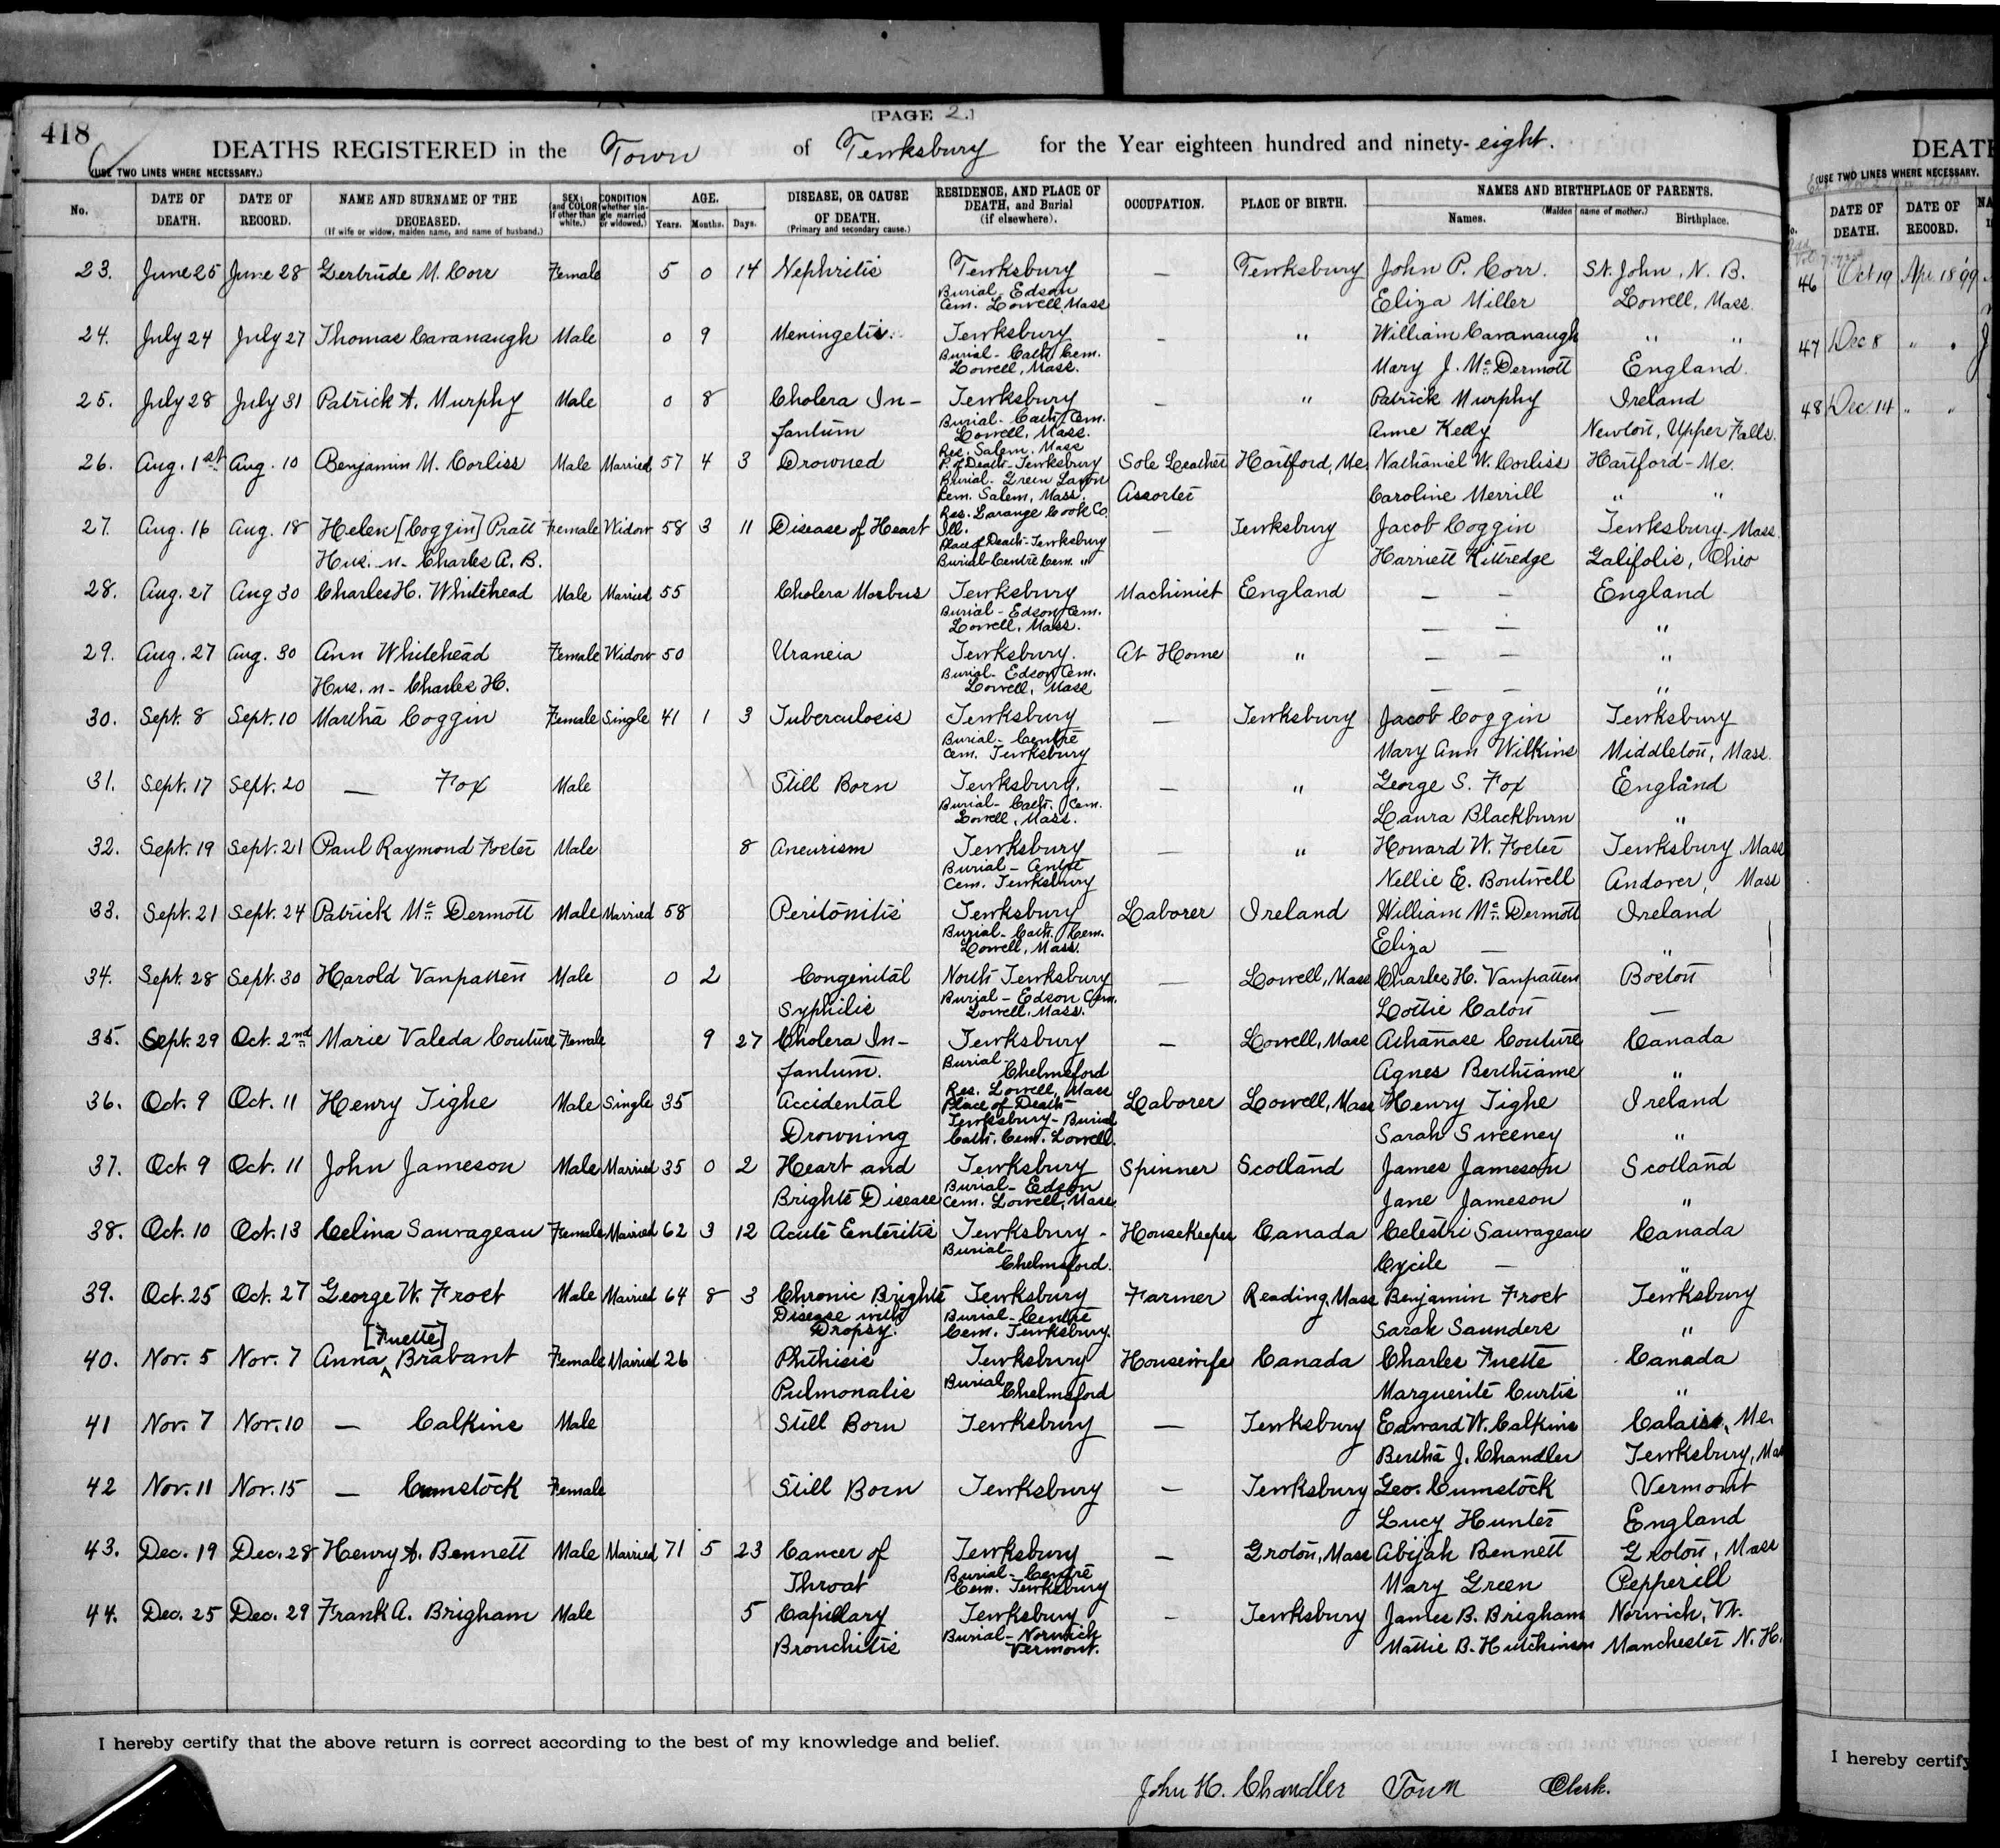 [PAGE 2.]
418
DEATHS REGISTERED in the Town of Tewksbury for the Year eighteen hundred and ninety-eight.
(USE TWO LINES WHERE NECESSARY.)
No. DATE OF DEATH. DATE OF RECORD. NAME AND SURNAME OF THE DECEASED. (If wife or widow, maiden name, and name of husband.) SEX; (and COLOR if other than white.) CONDITION (whether single married or widowed.) AGE. Years. Months. Days. DISEASE, OR CAUSE OF DEATH. (Primary and secondary cause.) RESIDENCE, AND PLACE OF DEATH, and Burial (if elsewhere). OCCUPATION. PLACE OF BIRTH. NAMES AND BIRTHPLACE OF PARENTS. Names. (Maiden name of mother.) Birthplace.
23. June 25 June 28 Gertrude M. Corr Female 5 0 14 Nephritis Tewksbury — Tewksbury John P. Corr. St. John, N. B.
Burial-Edson
Cem. Lowell, Mass Eliza Miller Lowell, Mass.
24. July 24 July 27 Thomas Cavanaugh Male 0 9 Meningetis. Tewksbury - " William Cavanaugh " "
Burial-Cath. Cem.
Lowell, Mass. Mary J. Mc. Dermott England.
25. July 28 July 31 Patrick A. Murphy Male 0 8 Cholera In- Tewksbury - " Patrick Murphy Ireland
Burial-Cath. Cem.
fantum Lowell, Mass. Anne Kelly Newton, Upper Falls.
Res. Salem, Mass
26. Aug. 1st Aug. 10 Benjamin M. Corliss Male Married 57 4 3 Drowned P. of Death-Tewksbury Sole Leather Hartford, Me Nathaniel W. Corliss Hartford-Me.
Burial-Green Lawn
Cem. Salem, Mass. Assorter Caroline Merrill " "
Res. Larange Cook Co.
27. Aug. 16 Aug. 18 Helen [Coggin] Pratt Female Widow 58 3 11 Disease of Heart Ill. — Tewksbury Jacob Coggin Tewksbury-Mass.
Place of Death-Tewksbury
Hus. n- Charles A. B. Burial-Centre Cem. " Harriett Kittredge Galifolis, Ohio
28. Aug. 27 Aug 30 Charles H. Whitehead Male Married 55 Cholera Morbus Tewksbury Machinist England — — England
Burial-Edson Cem.
Lowell, Mass. — — "
29. Aug. 27 Aug. 30 Ann Whitehead Female Widow 50 Uraneia Tewksbury. At Home " — — "
Burial-Edson Cem.
Hus. n- Charles H. Lowell, Mass — — "
30. Sept. 8 Sept. 10 Martha Coggin Female Single 41 1 3 Tuberculosis Tewksbury — Tewksbury Jacob Coggin Tewksbury
Burial-Centre
Cem. Tewksbury Mary Ann Wilkins Middleton, Mass.
31. Sept. 17 Sept. 20 — Fox Male X Still Born Tewksbury. — " George S. Fox England
Burial-Cath. Cem.
Lowell, Mass. Laura Blackburn "
32. Sept. 19 Sept. 21 Paul Raymond Foster Male 8 Aneurism Tewksbury — " Howard W. Foster Tewksbury Mass
Burial-Centre
Cem. Tewksbury Nellie E. Boutwell Andover, Mass
33. Sept. 21 Sept. 24 Patrick Mc. Dermott Male Married 58 Peritonitis Tewksbury Laborer Ireland William Mc. Dermott Ireland
Burial-Cath. Cem.
Lowell, Mass. Eliza — "
34. Sept. 28 Sept. 30 Harold Vanpatten Male 0 2 Congenital North Tewksbury — Lowell, Mass Charles H. Vanpatten Boston
Burial-Edson Cem.
Syphilis Lowell, Mass. Lottie Caton —
35. Sept. 29 Oct. 2nd Marie Valeda Couture Female 9 27 Cholera In- Tewksbury - Lowell, Mass Athanase Couture Canada
Burial-
fantum. Chelmsford Agnes Berthiame "
Res. Lowell, Mass
36. Oct. 9 Oct. 11 Henry Tighe Male Single 35 Accidental Place of Death Laborer Lowell, Mass Henry Tighe Ireland
Tewksbury-Burial
Drowning Cath. Cem. Lowell. Sarah Sweeney "
37. Oct. 9 Oct. 11 John Jameson Male Married 35 0 2 Heart and Tewksbury Spinner Scotland James Jameson Scotland
Burial-Edson
Brights Disease Cem. Lowell, Mass Jane Jameson "
38. Oct. 10 Oct. 13 Celina Sauvageau Female Married 62 3 12 Acute Enteritis Tewksbury- Housekeeper Canada Celestri Sauvageau Canada
Burial-
Chelmsford. Cycile — "
39. Oct. 25 Oct. 27 George W. Frost Male Married 64 8 3 Chronic Brights Tewksbury Farmer Reading, Mass Benjamin Frost Tewksbury
Disease with Burial-Centre
Dropsy. Cem. Tewksbury. Sarah Saunders "
[Fuette]
40. Nov. 5 Nov. 7 Anna ^ Brabant Female Married 26 Phthisis Tewksbury Housewife Canada Charles Fuette Canada
Burial
Pulmonalis Chelmsford Marguerite Curtis "
41 Nov. 7 Nov. 10 — Calkins Male X Still Born Tewksbury — Tewksbury Edward W. Calkins Calais, Me.
Bertha J. Chandler Tewksbury, Mas
42 Nov. 11 Nov. 15 — Cumstock Female X Still Born Tewksbury - Tewksbury Geo. Cumstock Vermont
Lucy Hunter England
43. Dec. 19 Dec. 28 Henry A. Bennett Male Married 71 5 23 Cancer of Tewksbury — Groton, Mass Abijah Bennett Groton, Mass
Burial-Centre
Throat Cem. Tewksbury Mary Green Pepperill
44. Dec. 25 Dec. 29 Frank A. Brigham Male 5 Capillary Tewksbury - Tewksbury James B. Brigham Norwich, Vt.
Burial-Norwich
Bronchitis Vermont. Mattie B. Hutchinson Manchester N. H.
I hereby certify that the above return is correct according to the best of my knowledge and belief.
John H. Chandler Town Clerk.
DEATH
(USE TWO LINES WHERE NECESSARY.
o. DATE OF DEATH. DATE OF RECORD. NA
46 Oct 19 Apr. 18 '99
47 Dec 8 " "
48 Dec. 14 " "
I hereby certify